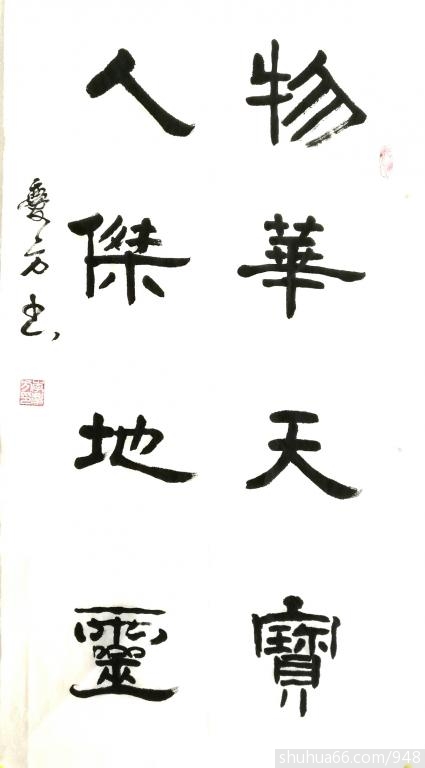 物華天寶
人傑地靈
慶方书
shuhua66.com/948